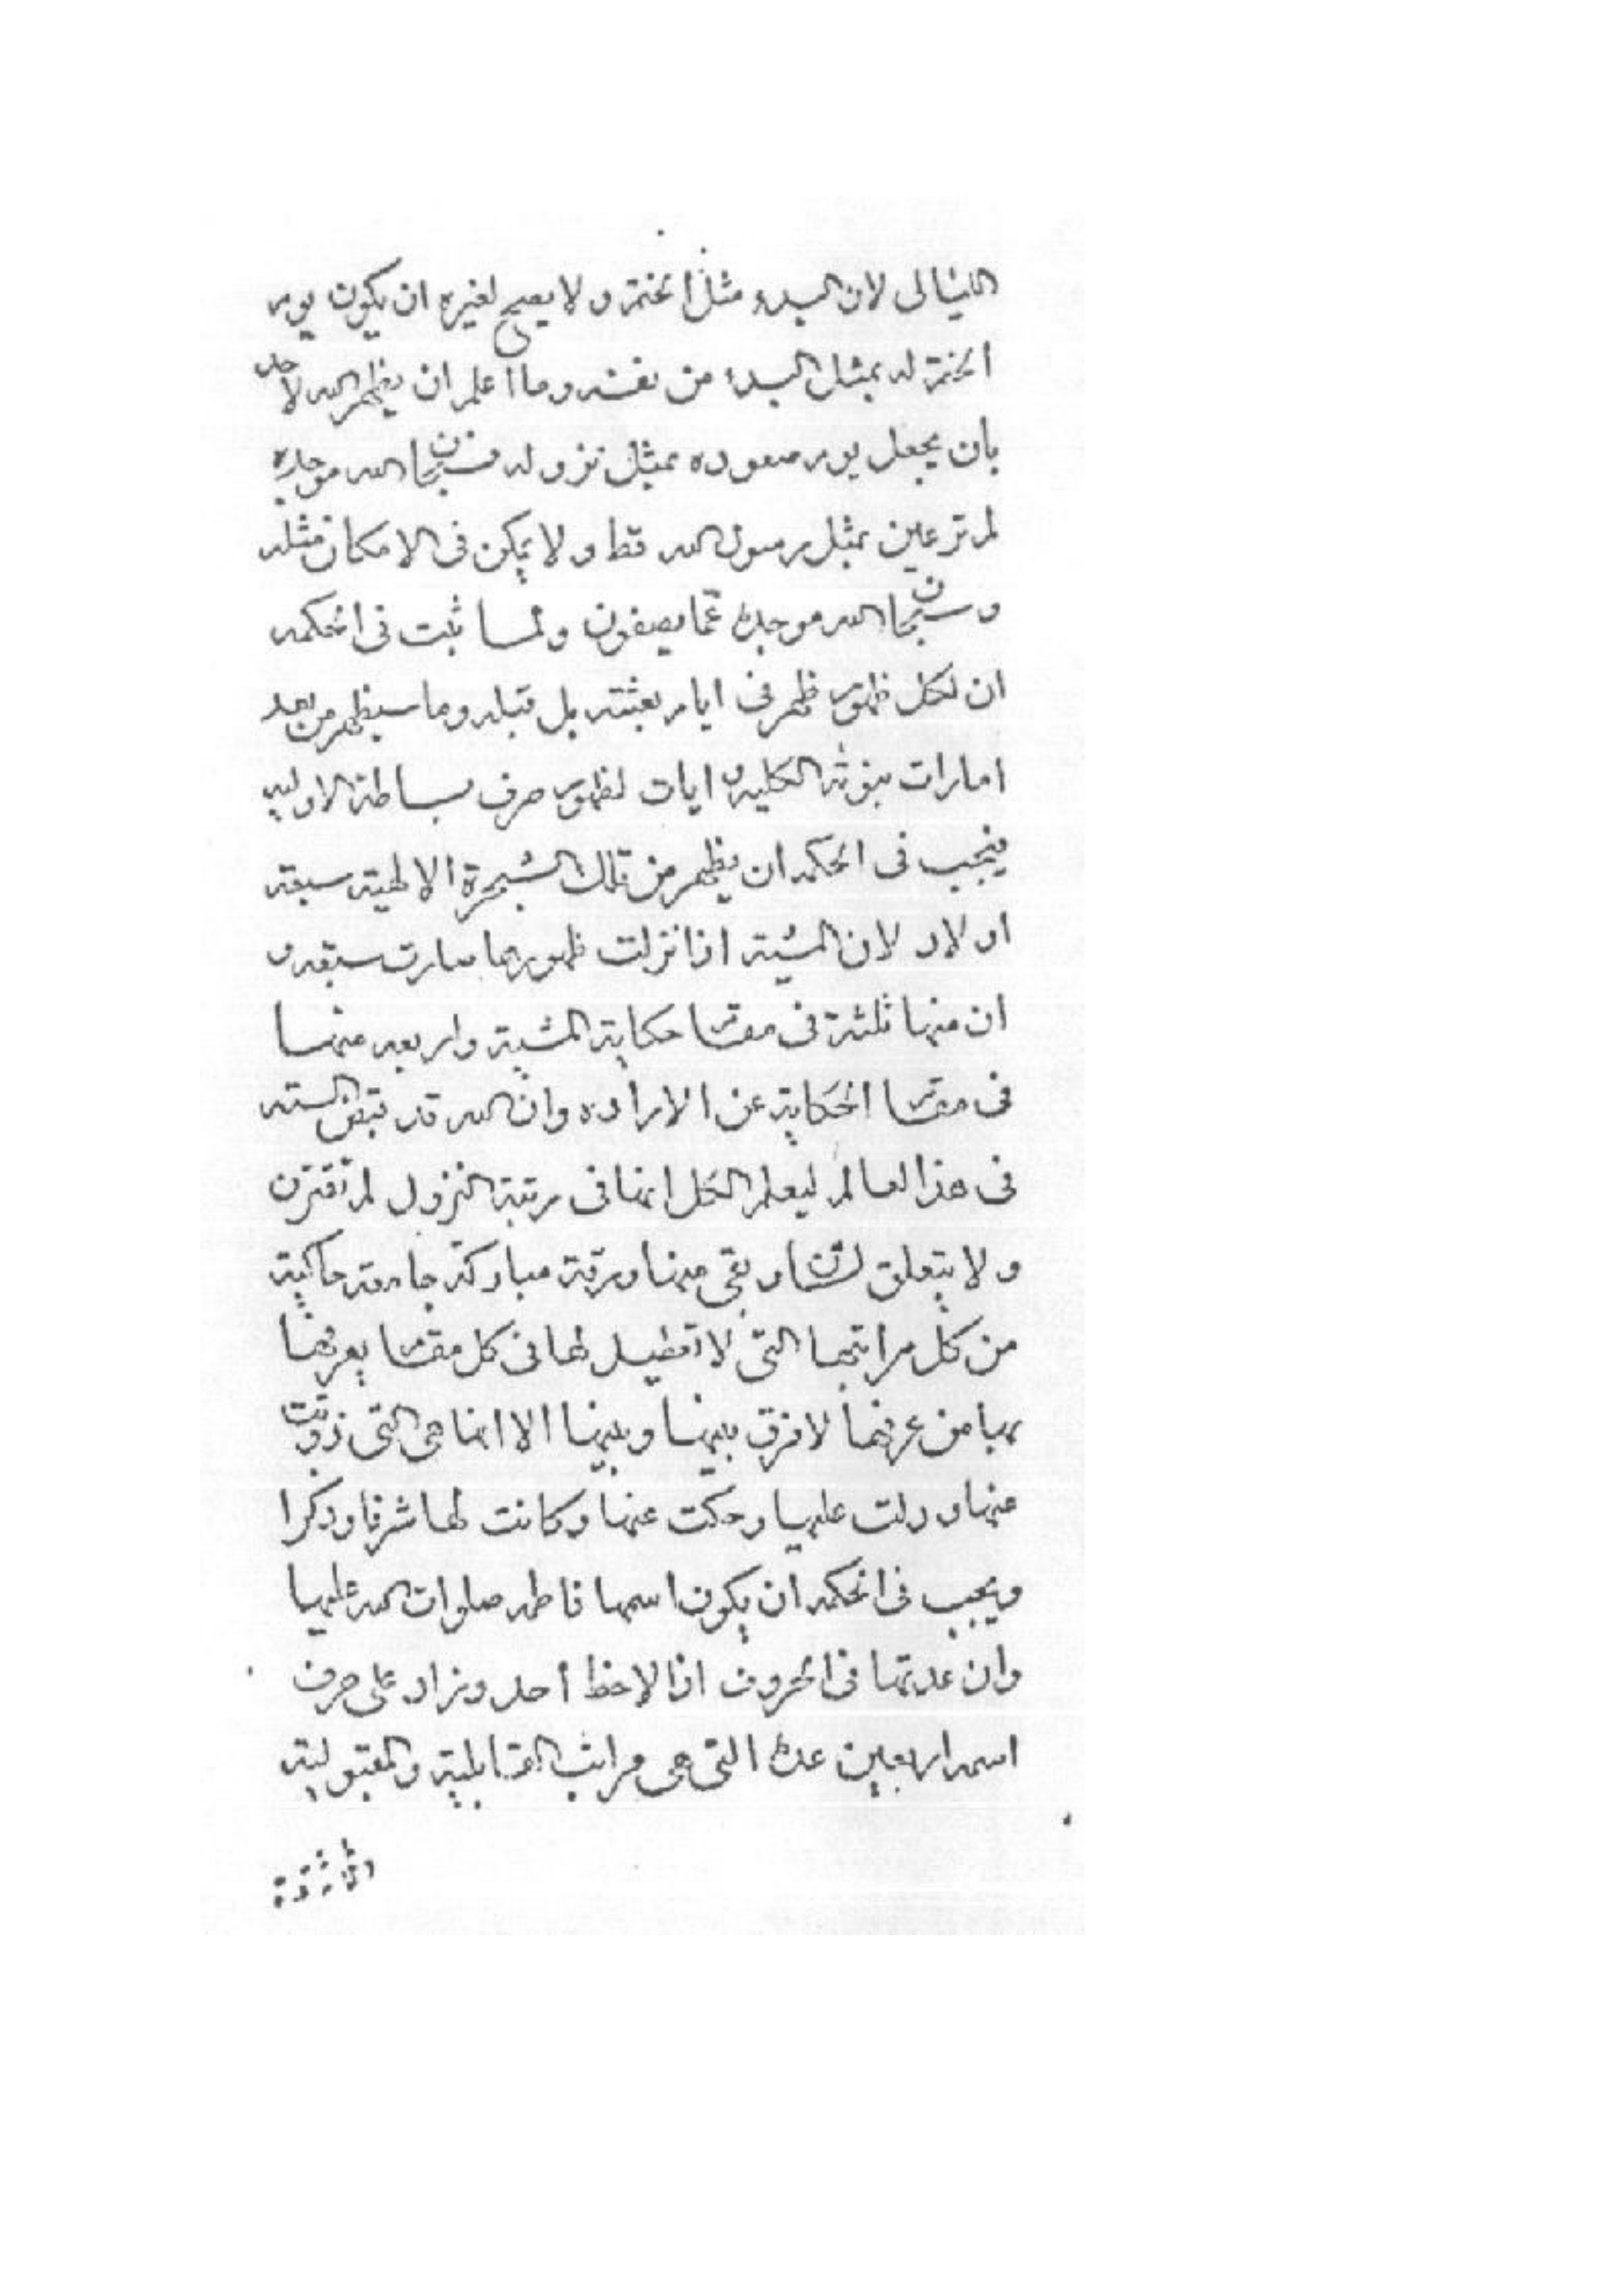 الليالى لان البدء مثل الختم و لا يصح لغيره ان يكون يوم
الختم له بمثل البدء من نفسه وما اعلم ان يظهر الله لاحد
بان يجعل يوم صعوده بمثل نزوله فسبحان الله موجده
لم تر عين بمثل رسول الله قط و لا يمكن فى الامكان مثله
و سبحان الله موجده عما يصفون و لما ثبت فى الحكمه
ان لكل ظهور ظهر فى ايام بعثته بل قبله وما سيظهر من بعد
امارات الكليه و ايات لظهور صرف بساطة الاوليه
فيجب فى الحكمه ان يظهر من تلك الشجرة الالهية سبعة
اولاد لان المشية اذا نزلت ظهورها صارت سبعة و
ان منها ثلثة فى مقام حكاية المشية واربعه منها
فى مقام الحكاية عن الاراده وان الله قد قبض السته
فى هذا العالم ليعلم الكل انها فى رتبة النزول لم تقترن
و لا يتعلق لشان و بقى منها ورقة مباركة جامعة حاكية
من كل مراتبها التى لا تعطيل لها فى كل مقام يعرفها
بها من عرفها لا فرق بينها وبينها الا انها هى التى ذوتت
عنها و دلت عليها و حكت عنها و كانت لها شرفا و ذكرا
ويجب فى الحكمه ان يكون اسمها فاطمه صلوات الله عليها
وان عدتها فى الحروف اذا لاحظ أحد و زاد على حرف
اسمه اربعين عدة التى هى مراتب القابلية والمقبولية